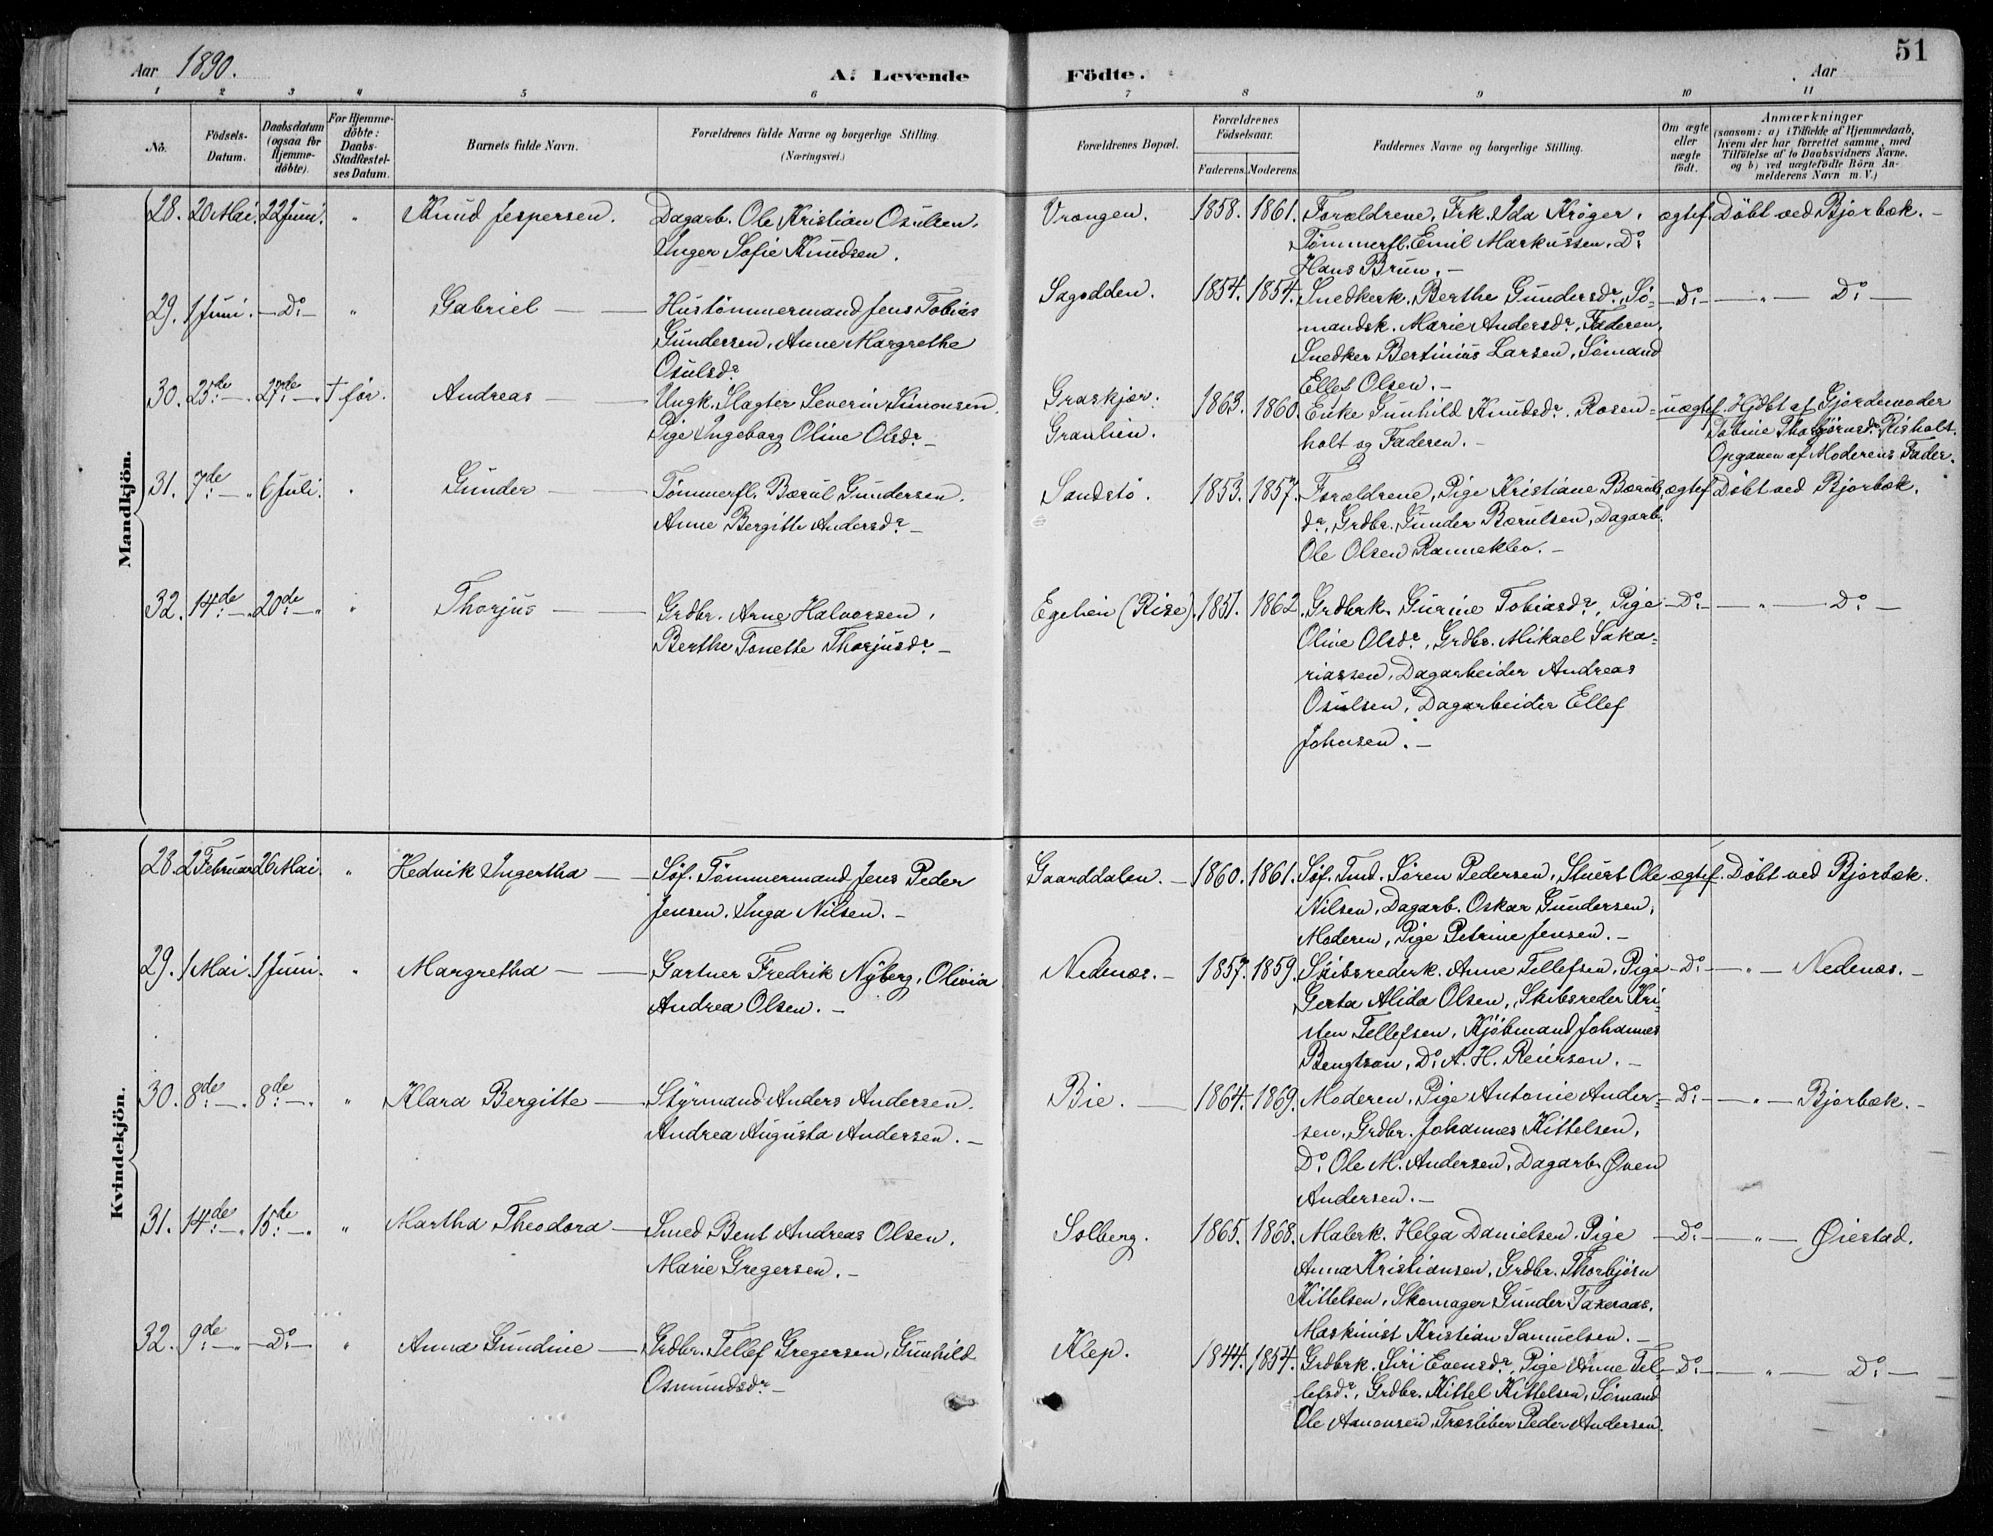 Aar 1890. A. Levende Födte. Aar 51
1 2 3 4 5 6 7 8 9 10 11
No. Födsels-Datum. Daabsdatum (ogsaa for Hjemmedöbte). For Hjemmedöbte: Daabs-Stadfæstelses Datum. Barnets fulde Navn. Forældrenes fulde Navne og borgerlige Stilling. (Næringsvei.) Forældrenes Bopæl. Forældrenes Födselsaar. Faderens. Moderens. Faddernes Navne og borgerlige Stilling. Om ægte eller uægte födt. Anmærkninger (saasom: a) i Tilfælde af Hjemmedaab, hvem der har forrettet samme, med Tilföielse af to Daabsvidners Navne. og b) ved uægtefödte Börn Anmelderens Navn m. V.)
Mandkjön.
28. 20 Mai. 22 Juni. " Knud Jespersen. Dagarb. Ole Kristian Osulsen. Vrangen. 1858. 1861. Forældrene, Frk. Ida Krøger, ægtef. Døbt ved Bjorbæk. -
Inger Sofie Knudsen. Tømmerfl. Emil Markussen, Do
Hans Brun. -
29. 1 Juni. - Do - " Gabriel — Hustømmermand Jens Tobias Sagodden. 1854. 1854. Snedkerk. Berthe Gundersdr, Sø- - Do - — " — Do —
Gundersen, Anne Margrethe mandsk. Marie Andersdr, Faderen,
Osulsdr Snedker Bertinius Larsen, Sømand
Ellef Olsen. -
30. 25de - 27de - † før. Andreas — Ungk. Slagter Severin Simonsen. Graskjær. 1863. 1860. Enke Gunhild Knudsdr. Rosen- uægtef. Hjdøbt af Gjordemoder
Pige Ingeborg Oline Olsdr - Granlien. holt og Faderen. - Tobine Thorbjørnsdr Risholt.
Opgaven af Moderens Fader.
31. 7de - " 6 Juli. " Gunder — Tømmerfl. Bærul Gundersen. Sandstø. 1853. 1857. Forældrene, Pige Kristiane Bæruls- ægtef. Døbt ved Bjorbæk.
Anne Bergitte Andersdr - dr, Grdbr. Gunder Bærulsen, Dagarb.
Ole Olsen Ranneklev. -
32. 14de - " 20de - " " Thorjus — Grdbr. Arne Halvorsen, Egelien (Rise). 1851. 1862. Grdbrk. Gurine Tobiasdr, Pige - Do - — " — Do —
Berthe Tonette Thorjusdr - Oline Olsdr, Grdbr. Mikael Saka-
riassen, Dagarbeider Andreas
Osulsen, Dagarbeider Ellef
Johnsen. -
Kvindekjön.
28. 2 Februar 26 Mai. " Hedvik Ingertha — Søf. Tømmermand Jens Peder Gaarddalen. - 1860. 1861. Søf. Tmd. Søren Pedersen, Stuert Ole ægtef. Døbt ved Bjorbæk.
Jensen. Inga Nilsen. - Nilsen, Dagarb. Oskar Gundersen,
Moderen, Pige Petrine Jensen. -
29. 1 Mai. 1 Juni. " Margretha — Gartner Fredrik Nyberg, Olivia Nedenæs. - 1857. 1859. Skibsrederk. Anne Tellefsen, Pige - Do - — " — Nedenæs. -
Andrea Olsen. - Gerta Alida Olsen, Skibsreder Kri-
sten Tellefsen, Kjøbmand Johannes
Bengtson, Do A. H. Reierson. -
30. 8de - " 8de - " " Klara Bergitte — Styrmand Anders Andersen. Bie. — 1864. 1869. Moderen, Pige Antonie Ander- - Do - — " — Bjorbæk. -
Andrea Augusta Andersen. - sen, Grdbr. Johannes Kittelsen,
Do Ole M. Andersen, Dagarb. Øven
Andersen. -
31. 14de - " 15de - " " Martha Theodora — Smed Bent Andreas Olsen, Solberg. 1865. 1868. Malerk. Helga Danielsen. Pige - Do - — " — Øiestad.
Marie Gregersen. - Anna Kristiansen, Grdbr. Thorbjørn
Kittelsen, Skomager Gunder Taxeraas,
Maskinist Kristian Samuelsen. -
32. 9de - " - Do - " Anna Gundine — Grdbr. Tellef Gregersen, Gunhild Klep. 1844. 1854. Grdbrk. Siri Evensdr, Pige Anne Tel- - Do - — " — Do —
Osmundsdr - lefsdr, Grdbr. Kittel Kittelsen, Sømand
Ole Amonsen, Træsliber Peder Andersen.